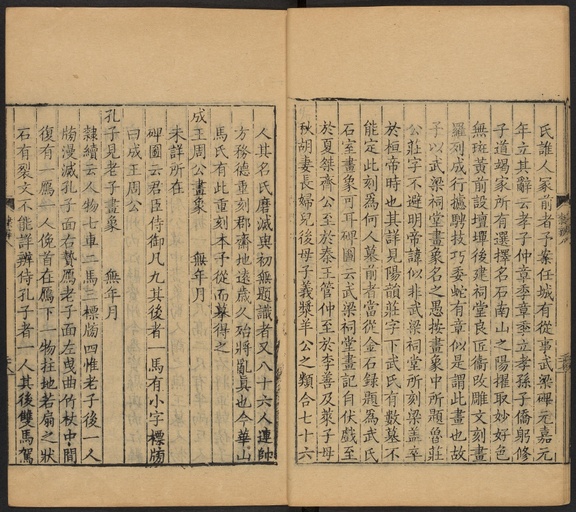 氏誰人冢前者予案任城有從事武梁碑元嘉元
年立其辭云孝子仲章季章季立孝孫子僑躬修
子道竭家所有選擇名石南山之陽擢取妙好色
無斑黃前設壇墠後建祠堂良匠衞改雕文刻畫
羅列成行攄騁技巧委蛇有章似是謂此畫也故
予以武梁祠堂畫象名之愚按畫象中所題魯莊
公莊字不避明帝諱似非武梁祠堂所刻梁蓋卒
於桓帝時也其詳見陽韻莊字下武氏有數墓不
能定此刻為何人墓前者當從金石錄題為武氏
石室畫象可耳碑圖云武梁祠堂畫記自伏戲至
於夏桀齊公至於秦王管仲至於李善及萊子母
秋胡妻長婦兒後母子義漿羊公之類合七十六
人其名氏磨滅與初無題識者又八十六人連帥
方務德重刻郡齋地遠歲久殆將亂真也今華山
馬氏有此重刻本子從而摹得之
成王周公畫象 無年月
未詳所在
碑圖云君臣侍御凡九其後者一馬有小字標牓
曰成王周公
孔子見老子畫象 無年月
隸續云人物七車二馬三標牓四惟老子後一人
牓漫滅孔子面右贄鴈老子面左曳曲竹杖中間
復有一鴈一人俛首在鴈下一物拄地若扇之狀
石有裂文不能詳辨侍孔子者一人其後雙馬駕